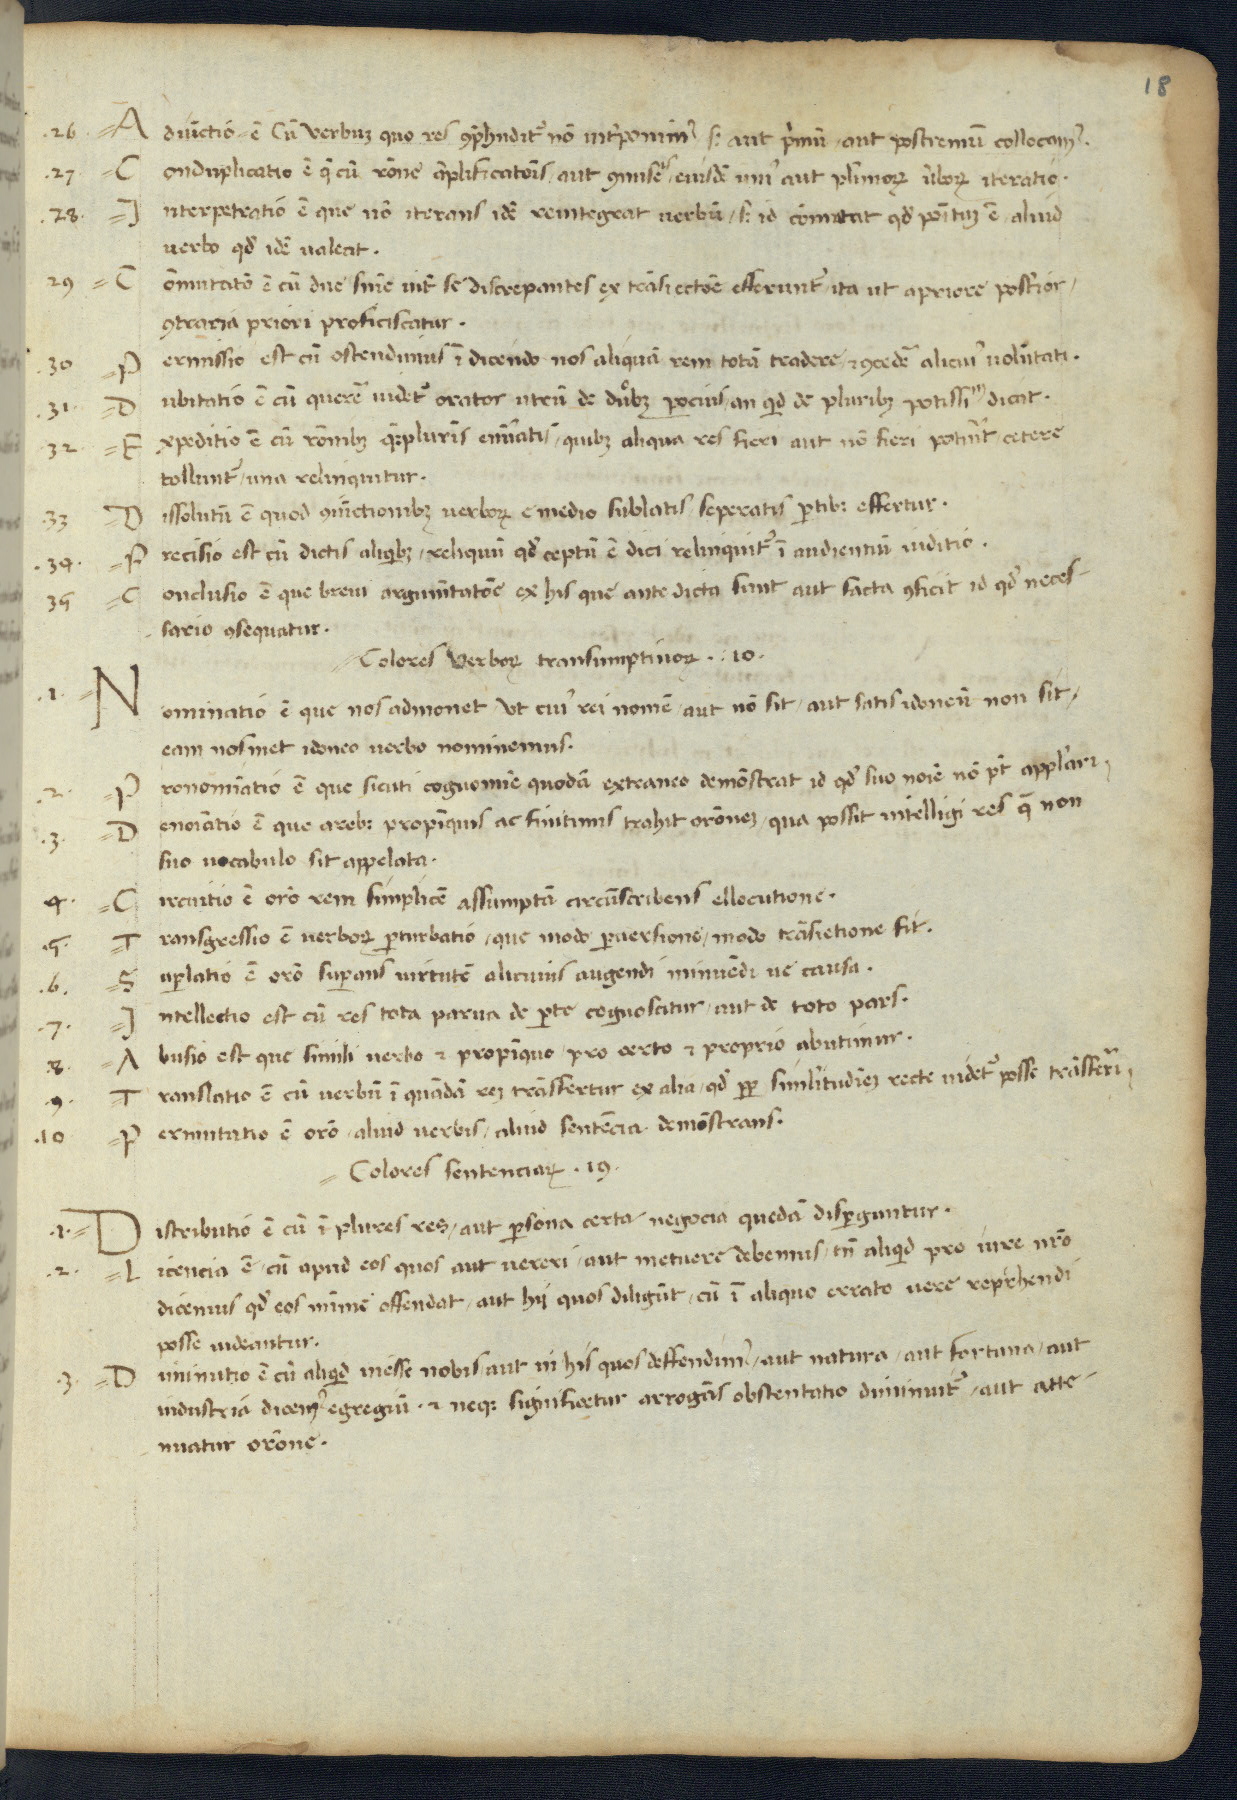 18
.26. A diu̅ctio e̅ Cu̅ verbuȝ quo res ꝯp̅hnditᷣ no̅ int̅ponimꝰ sꝫ aut p̅mu̅ / aut postremu̅ collocamꝰ.
.27. C onduplicatio e̅ cu̅ ro̅ne a̅plificato̅is / aut eiusde̅ uniꝰ aut plimoꝝ u̅boꝝ iteratio.
.28. I nterpetratio e̅ que no̅ iterans ide̅ reintegrat verbu̅ / sꝫ id co̅mutat qd̅ po̅ituȝ e̅ / aliud
verbo qd̅ ide̅ valeat.
29 C o̅mutato̅ e̅ cu̅ due sn̅ie int̅ se discrepantes ex tra̅siecto̅e efferunt̅ / ita ut apriore post̅ior /
ꝯtraria priori proficiscatur.
.30 P ermissio est cu̅ ostendimus i̅ dicendo nos aliqua̅ rem tota̅ tradere / ⁊ ꝯcede̅ alicuiꝰ volu̅tati.
.31. D ubitatio e̅ cu̅ quere̅ uidetᷣ orator utru̅ de duobȝ pocius / an qid de pluribȝ potissim̅ dicat.
.32. E xpeditio e̅ cu̅ ro̅nibȝ pluris enu̅catis / quibȝ aliqua res fieri aut no̅ fieri potuit̅ / cetere
tollunt̅ / una relinquitur.
.33 D issolutu̅ e̅ quod ꝯiu̅ctionibȝ verboꝝ e medio sublatis seperatis ꝑtibꝫ effertur.
.34. P recisio est cu̅ dictis aliqibȝ / reliquu̅ qd̅ ceptu̅ e̅ dici relinquitᷣ i̅ audientiu̅ iuditio.
35 C onclusio e̅ que brevi argum̅tato̅e ex his que ante dicta sunt aut facta ꝯficit id qd̅ neces-
sario ꝯsequatur.
Colores verboꝝ transumptivoꝝ . .10.
.1. N ominatio e̅ que nos admonet / vt cuiꝰ rei nome̅ / aut no̅ sit / aut satis idoneu̅ non sit /
eam nosmet idoneo verbo nominemus.
.2. P ronomi̅atio e̅ que sicuti cognomi̅e quoda̅ extraneo demo̅strat id qd̅ suo noi̅e no̅ pt̅ appl̅ari.
.3. D enoi̅atio e̅ que arebꝫ propi̅quis ac finitimis trahit oro̅neȝ / qua possit intelligi res q̅ non
suo vocabulo sit appelata.
4. C ircuitio e̅ oro̅ rem simplice̅ assumpta̅ circu̅scribens ellocutione.
.5. T ransgressio e̅ verboꝝ ꝑturbatio / que modo ꝑuersione / modo tra̅sietione fit.
.6. S uꝑlatio e̅ oro̅ suꝑans uirtute̅ alicuius augendi minue̅di ve causa.
.7. I ntellectio est cu̅ res tota parua de ꝑte cognoscitur / aut de toto pars.
.8. A busio est que simili verbo ⁊ propi̅quo / pro certo ⁊ proprio abutimur.
.9. T ranslatio e̅ cu̅ verbu̅ i̅ qua̅da̅ reȝ tra̅sfertur ex alia / qd̅ simil̅itudi̅eȝ recte videtᷣ posse tra̅sferri̅.
.10 P ermutatio e̅ oro̅ / aliud verbis / aliud sente̅cia demo̅strans.
Colores sentenciaꝝ . 19.
.1. D istributio e̅ cu̅ i̅ plures res / aut ꝑsona certa negocia queda̅ disꝑguntur.
.2. L icencia e̅ / cu̅ apud eos quos aut vereri / aut metuere debemus / tn̅ aliqid pro iure nr̅o
dicemus qd̅ eos mi̅me offendat / aut hij quos diligu̅t / cu̅ i̅ aliquo errato vere rep̅hendi
posse videantur.
.3. D iminutio e̅ cu̅ aliqid inesse nobis aut in his quos deffendimꝰ / aut natura / aut fortuna / aut
industria dicemꝰ egregiu̅ . ⁊ neqꝫ significetur arroga̅s obstentatio diminuit̅ / aut atte-
nuatur oro̅ne.